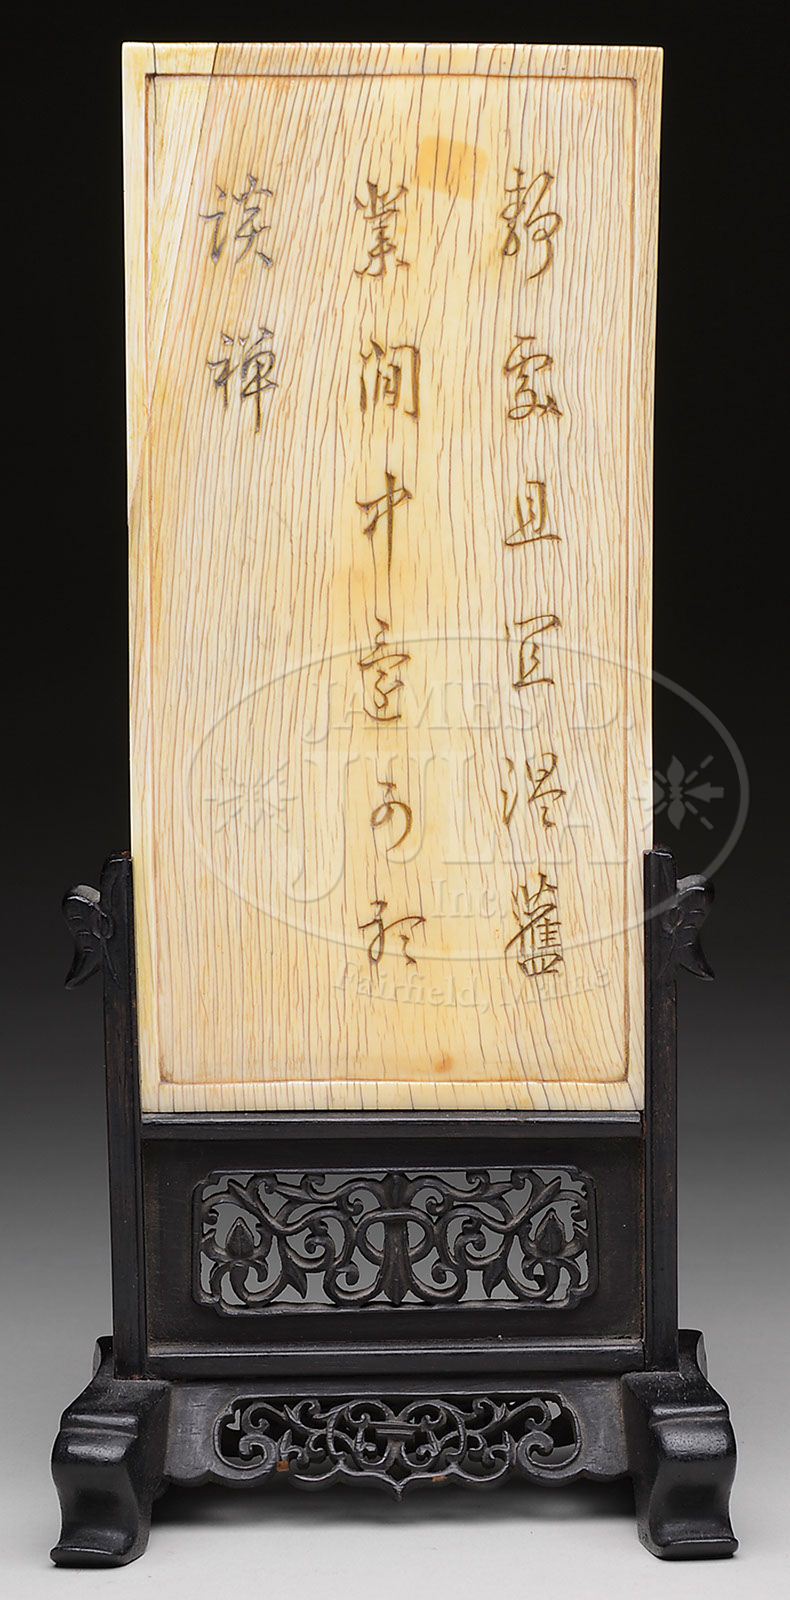 靜處且宜温舊
業閒中還可
談禪
JAMES D.
JULIA
Inc.
Fairfield, Maine